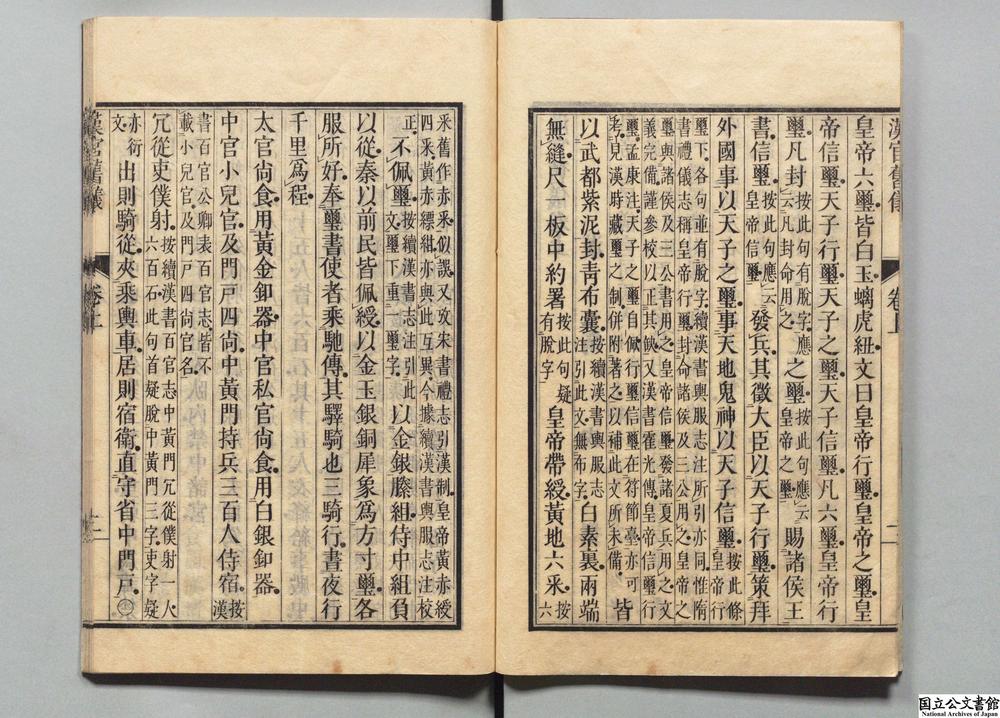 漢官舊儀 卷上 二
皇帝六璽皆白玉螭虎紐文曰皇帝行璽皇帝之璽皇
帝信璽天子行璽天子之璽天子信璽凡六璽皇帝行
璽凡封按此句有脫字應云凡封命用之之璽按此句應云皇帝之璽賜諸侯王
書信璽按此句應云皇帝信璽發兵其徵大臣以天子行璽策拜
外國事以天子之璽事天地鬼神以天子信璽按此條皇帝行
璽下各句並有脫字續漢書輿服志注所引亦同惟隋
書禮儀志稱皇帝行璽封命諸侯及三公用之皇帝之
璽與諸侯及三公書用之皇帝信璽發諸夏兵用之文
義完備謹參校以正其缺又漢書霍光傳皇帝信璽行
璽孟康注天子之璽自佩行璽信璽在符節臺亦可
考見漢時藏璽之制併附著之以補此文所未備皆
以武都紫泥封青布囊按續漢書輿服志注引此文無布字白素裏兩端
無縫尺一板中約署按此句疑有脫字皇帝帶綬黃地六采按六
采舊作赤采似誤又攷宋書禮志引漢制皇帝黃赤綬
四采黃赤縹紺亦與此互異今據續漢書輿服志注校
正不佩璽按續漢書志注引此文璽下重一璽字以金銀縢組侍中組負
以從秦以前民皆佩綬以金玉銀銅犀象爲方寸璽各
服所好奉璽書使者乘馳傳其驛騎也三騎行晝夜行
千里爲程
太官尚食用黃金釦器中官私官尚食用白銀釦器
中官小兒官及門戶四尚中黃門持兵三百人侍宿按漢
書百官公卿表百官志皆不
載小兒官及門戶四尚官名
冗從吏僕射按續漢書百官志中黃門冗從僕射一人
六百石此句首疑脫中黃門三字吏字疑
亦衍文出則騎從夾乘輿車居則宿衛直守省中門戶
漢官舊儀 卷上 二
国立公文書館
National Archives of Japan